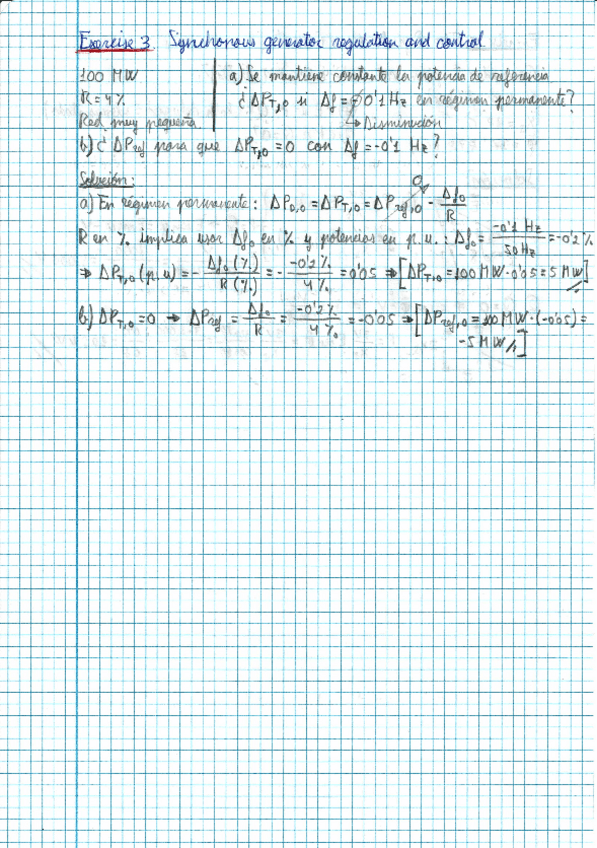 Exercise 3. Synchonous generator regulation and control
100 MW
R = 4%
Red muy pequeña
a) Se mantiene constante la potencia de referencia
¿ΔP_T,0 si Δf = -0'1 Hz en régimen permanente?
↳ Disminución
b) ¿ΔPref para que ΔP_T,0 = 0 con Δf = -0'1 Hz?
Solución:
a) En régimen permanente: ΔP_D,0 = ΔP_T,0 = ΔPref,0 - Δf0/R
0
R en % implica usar Δf0 en % y potencias en p.u.: Δf0 = -0'1 Hz/50 Hz = -0'2%
⇒ ΔP_T,0 (p.u) = - Δf0 (%)/R (%) = - -0'2%/4% = 0'05 ⇒ [ΔP_T,0 = 100 MW · 0'05 = 5 MW]
b) ΔP_T,0 = 0 → ΔPref = Δf0/R = -0'2%/4% = -0'05 ⇒ [ΔPref,0 = 100 MW · (-0'05) =
-5 MW]